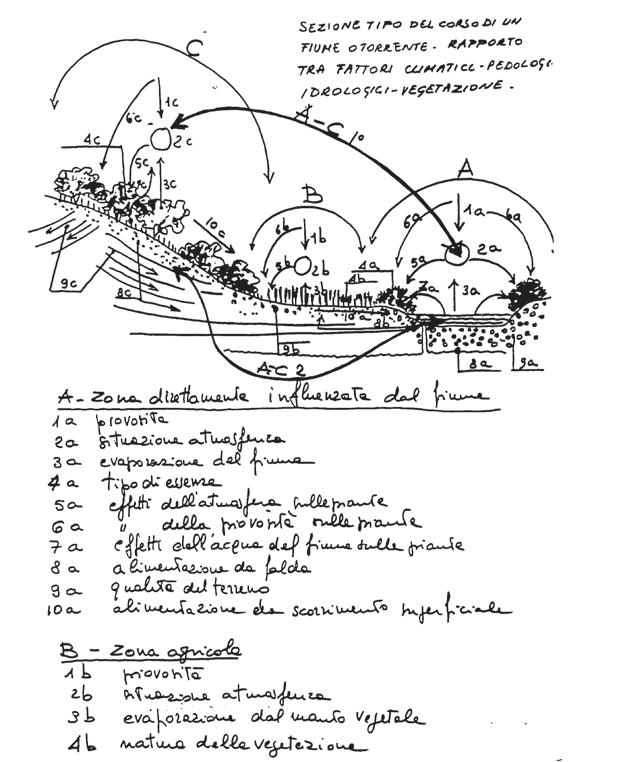 SEZIONE TIPO DEL CORSO DI UN
FIUME O TORRENTE. RAPPORTO
TRA FATTORI CLIMATICI-PEDOLOGI
IDROLOGICI-VEGETAZIONE.
C
1c
6c
2c
4c
5c
3c
A-C 1°
A
B
10c
6b
1b
5b
2b
3b
4a
4b
6a
1a
6a
5a
2a
7a
3a
9c
8c
10a
8b
9b
A-C 2
8a
9a
A - Zona direttamente influenzata dal fiume
1a piovosità
2a situazione atmosferica
3a evaporazione del fiume
4a tipo di essenza
5a effetti dell'atmosfera sulle piante
6a " della piovosità sulle piante
7a effetti dell'acqua del fiume sulle piante
8a alimentazione da falda
9a qualità del terreno
10a alimentazione da scorrimento superficiale
B - Zona agricola
1b piovosità
2b situazione atmosferica
3b evaporazione dal manto vegetale
4b natura della vegetazione